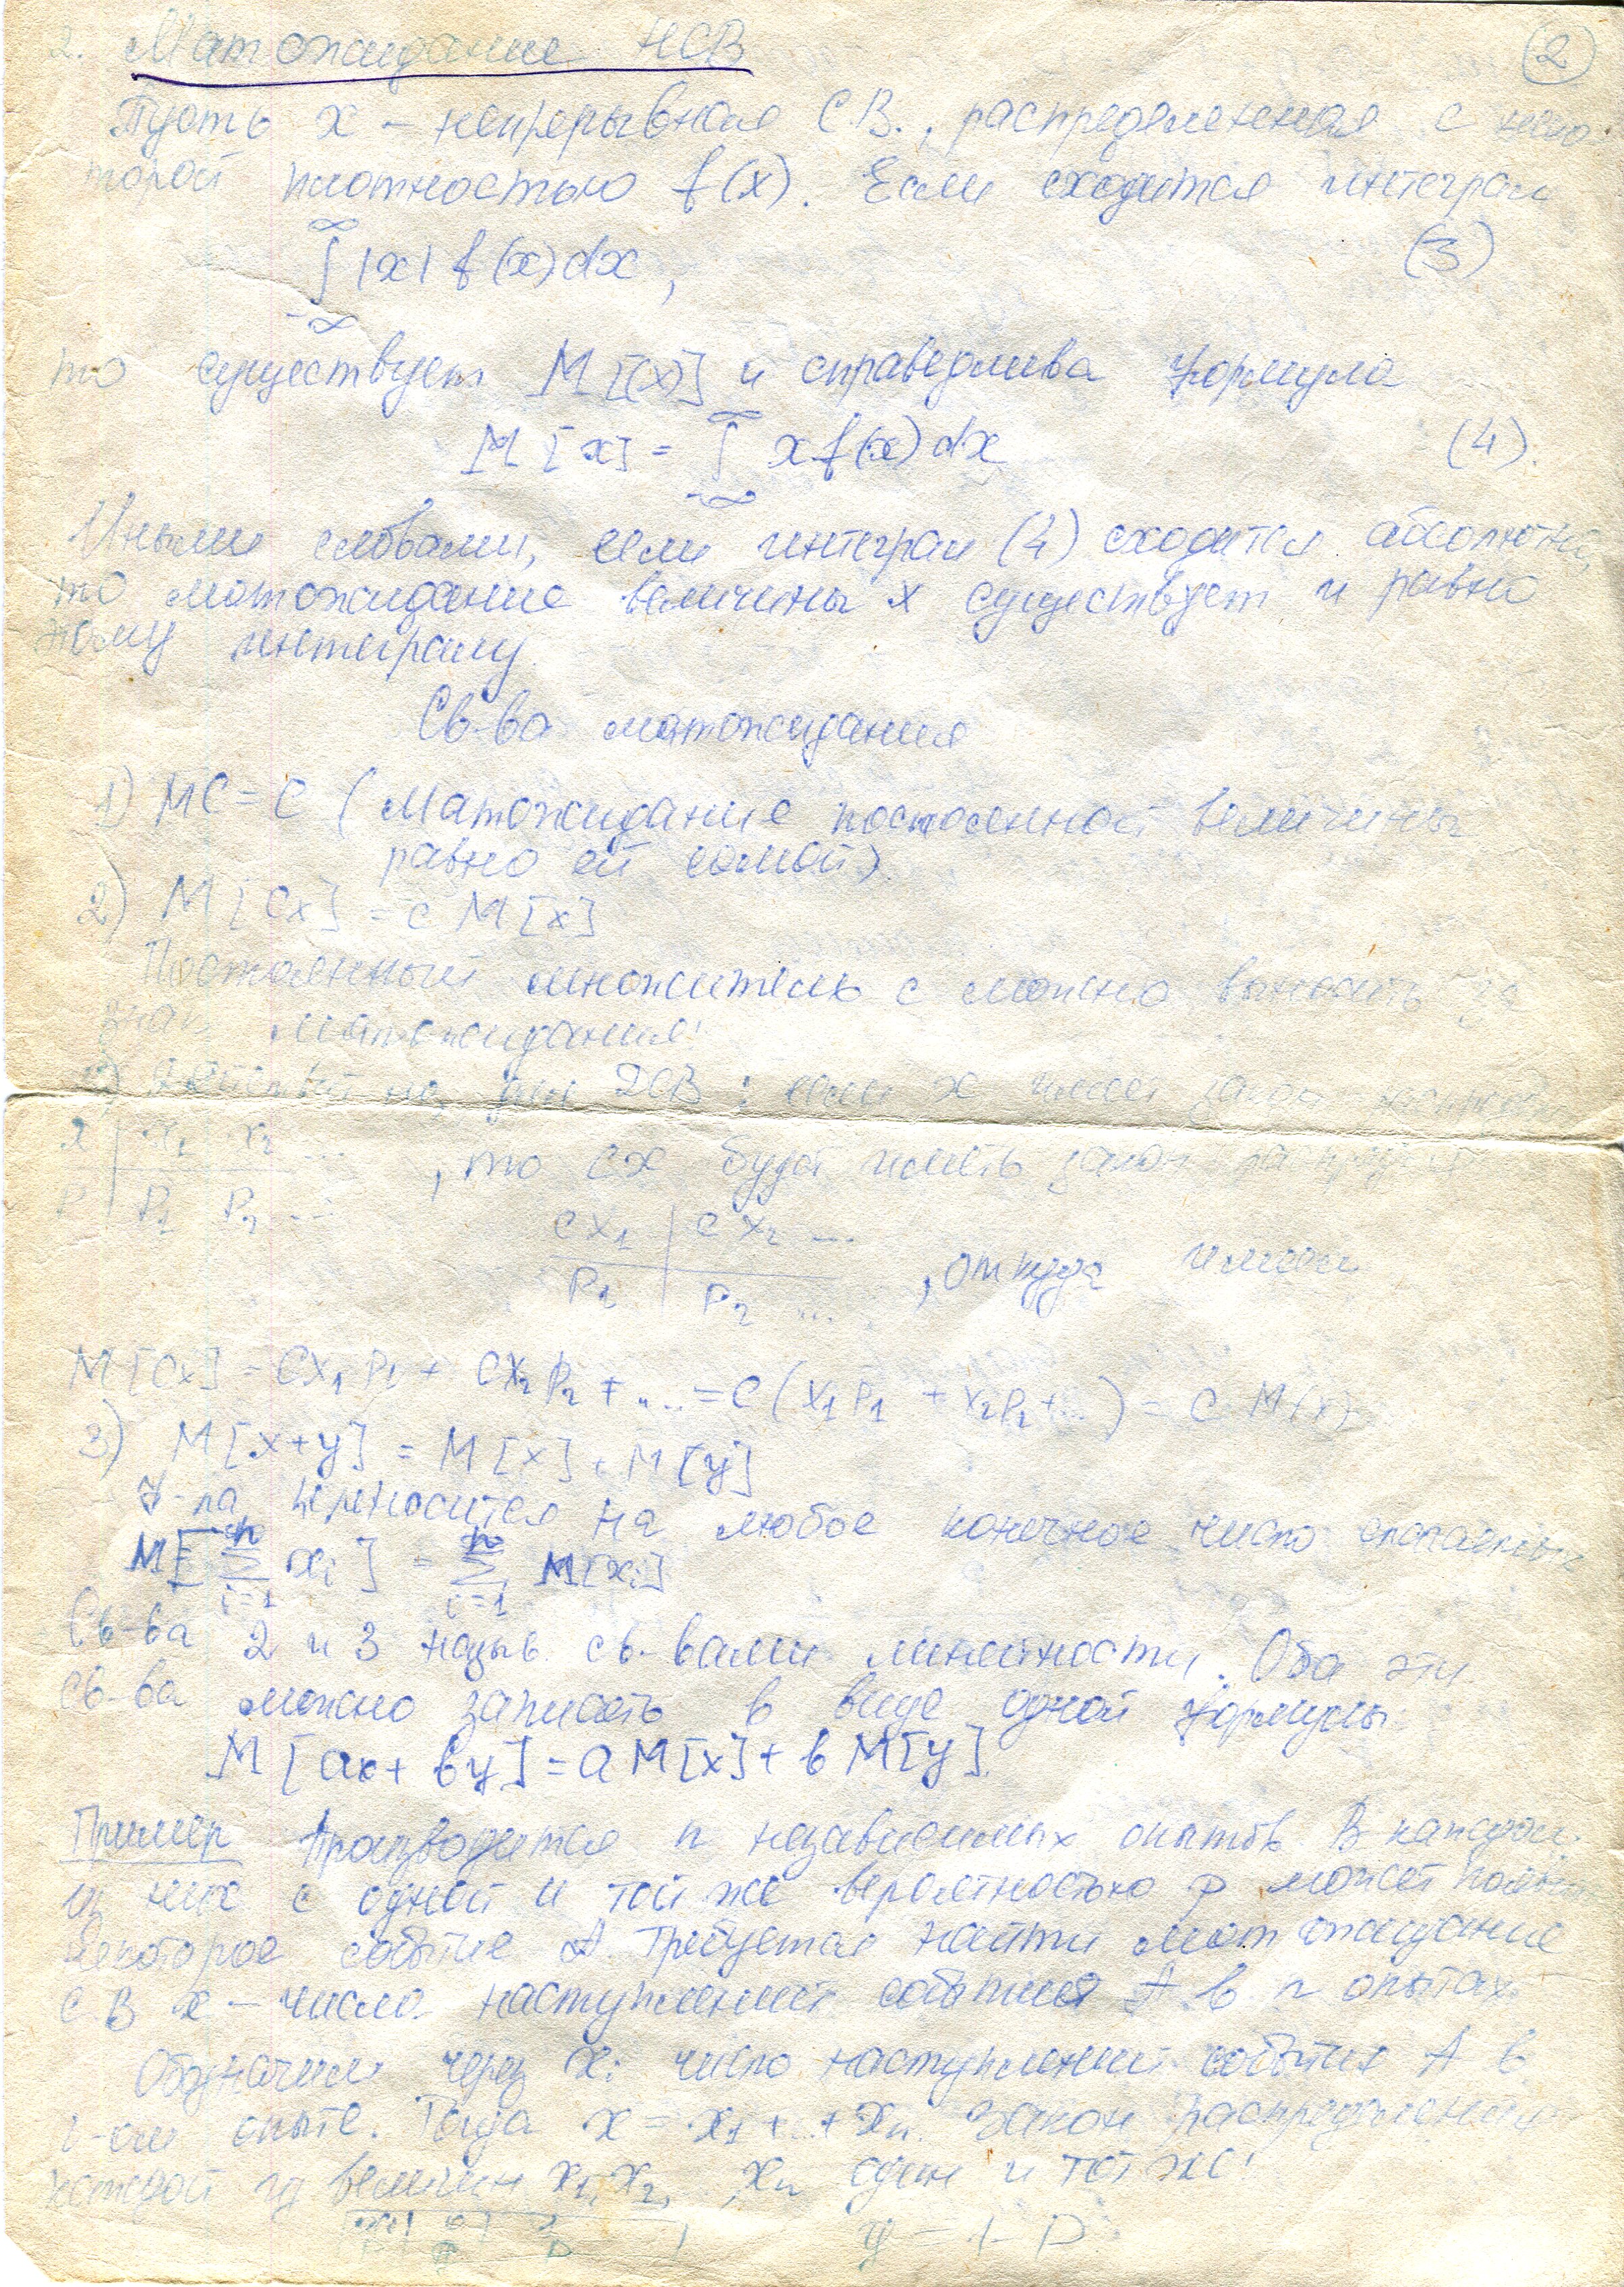 2. Матожидание НСВ
2
Пусть x – непрерывная С.В., распределенная с неко-
торой плотностью f(x). Если сходится интеграл
∫_{-∞}^{∞} |x| f(x)dx,   (3)
то существует M[(x)] и справедлива формула
M[x] = ∫_{-∞}^{∞} x f(x)dx   (4).
Иными словами, если интеграл (4) сходится абсолютно,
то матожидание величины x существует и равно
этому интегралу.
Св-ва матожидания
1) MC = C (Матожидание постоянной величины
равно ей самой).
2) M[Cx] = C M[x]
Постоянный множитель c можно выносить за
знак матожидания!
для ДСВ: если x имеет закон
x | x₁ x₂ ...
P | P₁ P₂ ... , то Cx будет иметь закон
Cx₁ | Cx₂ ...
P₁ | P₂ ... , откуда имеем
M[Cx] = Cx₁P₁ + Cx₂P₂ + ... = C(x₁P₁ + x₂P₂+...) = C M(x)
3) M[x+y] = M[x] + M[y]
Ф-ла переносится на любое конечное число слагаемых
M[∑_{i=1}^{n} x_i] = ∑_{i=1}^{n} M[x_i]
Св-ва 2 и 3 назыв. св-вами линейности. Оба эти
св-ва можно записать в виде одной формулы
M[ax + by] = a M[x] + b M[y].
Пример Производится n независимых опытов. В каждом
из них с одной и той же вероятностью p может появит
некоторое событие A. Требуется найти мат ожидание
С.В x – числа наступлений события A в n опытах.
Обозначим через x_i число наступлений события A в
i-ом опыте. Тогда x = x₁ + ... + x_n. Закон распределения
каждой из величин x₁, x₂, , x_n один и тот же!
q = 1 - p